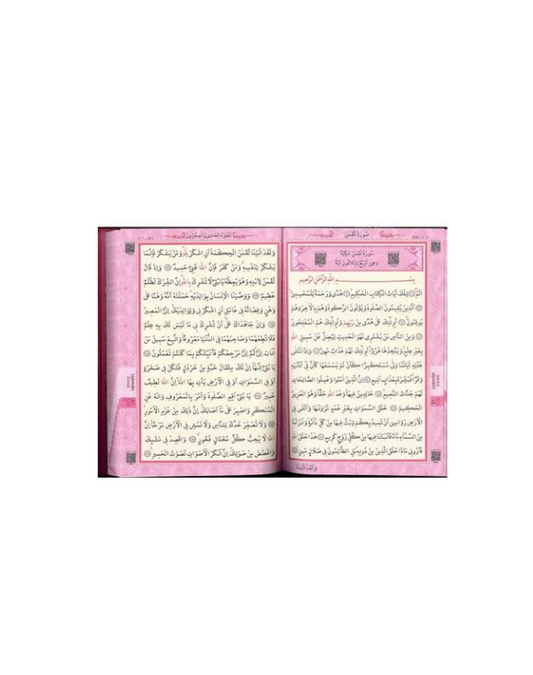 سورة لقمن
سورة لقمن مكية
وهى اربع وثلاثون اية
بسم الله الرحمن الرحيم
الم تلك آيات الكتاب الحكيم هدى ورحمة للمحسنين
الذين يقيمون الصلوة ويؤتون الزكوة وهم بالآخرة هم
يوقنون أولئك على هدى من ربهم وأولئك هم المفلحون
ومن الناس من يشترى لهو الحديث ليضل عن سبيل الله
بغير علم ويتخذها هزوا أولئك لهم عذاب مهين وإذا
تتلى عليه آياتنا ولى مستكبرا كأن لم يسمعها كأن فى أذنيه
وقرا فبشره بعذاب أليم إن الذين آمنوا وعملوا الصالحات
لهم جنات النعيم خالدين فيها وعد الله حقا وهو العزيز
الحكيم خلق السموات بغير عمد ترونها وألقى فى
الأرض رواسى أن تميد بكم وبث فيها من كل دابة وأنزلنا
من السماء ماء فأنبتنا فيها من كل زوج كريم هذا خلق الله
فأرونى ماذا خلق الذين من دونه بل الظالمون فى ضلال مبين
ولقد آتينا
الجزء الحادى والعشرون
ولقد آتينا لقمن الحكمة أن اشكر لله ومن يشكر فإنما
يشكر لنفسه ومن كفر فإن الله غنى حميد وإذ قال
لقمن لابنه وهو يعظه يا بنى لا تشرك بالله إن الشرك لظلم
عظيم ووصينا الإنسان بوالديه حملته أمه وهنا على
وهن وفصاله فى عامين أن اشكر لى ولوالديك إلى المصير
وإن جاهداك على أن تشرك بى ما ليس لك به علم
فلا تطعهما وصاحبهما فى الدنيا معروفا واتبع سبيل من
أناب إلى ثم إلى مرجعكم فأنبئكم بما كنتم تعملون
يا بنى إنها إن تك مثقال حبة من خردل فتكن فى صخرة
أو فى السموات أو فى الأرض يأت بها الله إن الله لطيف
خبير يا بنى أقم الصلوة وأمر بالمعروف وانه عن
المنكر واصبر على ما أصابك إن ذلك من عزم الأمور
ولا تصعر خدك للناس ولا تمش فى الأرض مرحا إن
الله لا يحب كل مختال فخور واقصد فى مشيك
واغضض من صوتك إن أنكر الأصوات لصوت الحمير